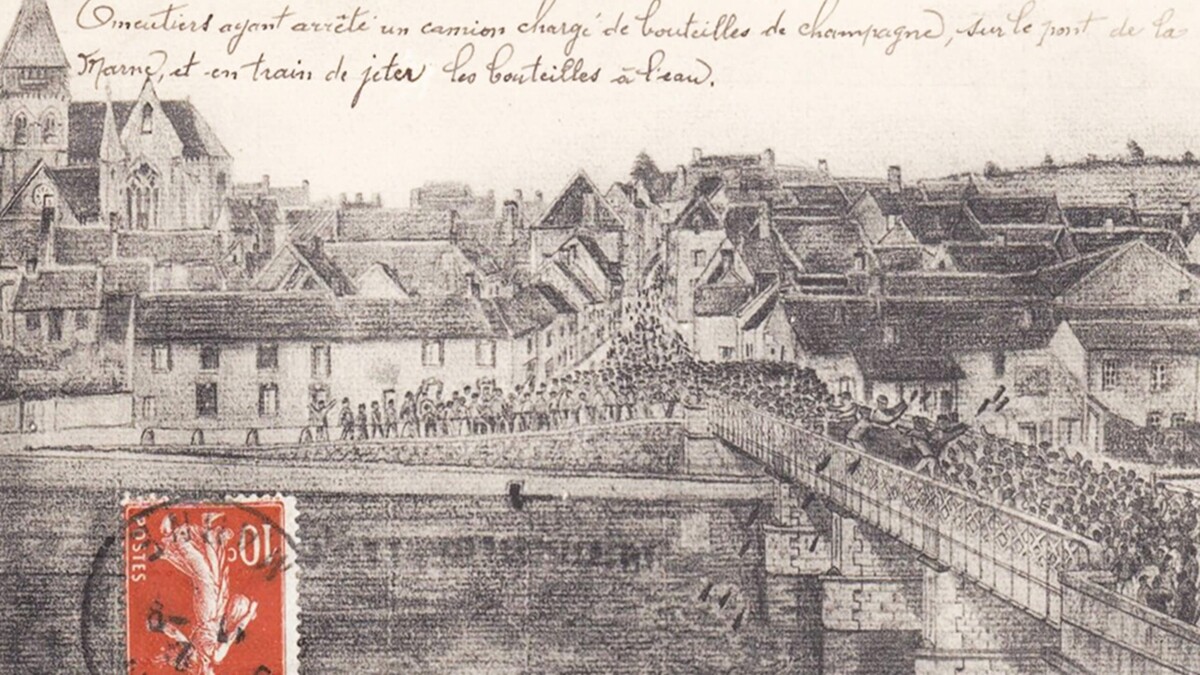 Emeutiers ayant arrêté un camion chargé de bouteilles de champagne, sur le pont de la
Marne, et en train de jeter les bouteilles à l'eau.
10c
POSTES